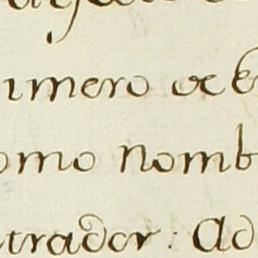 imero de
omo nomb
trador: Ad